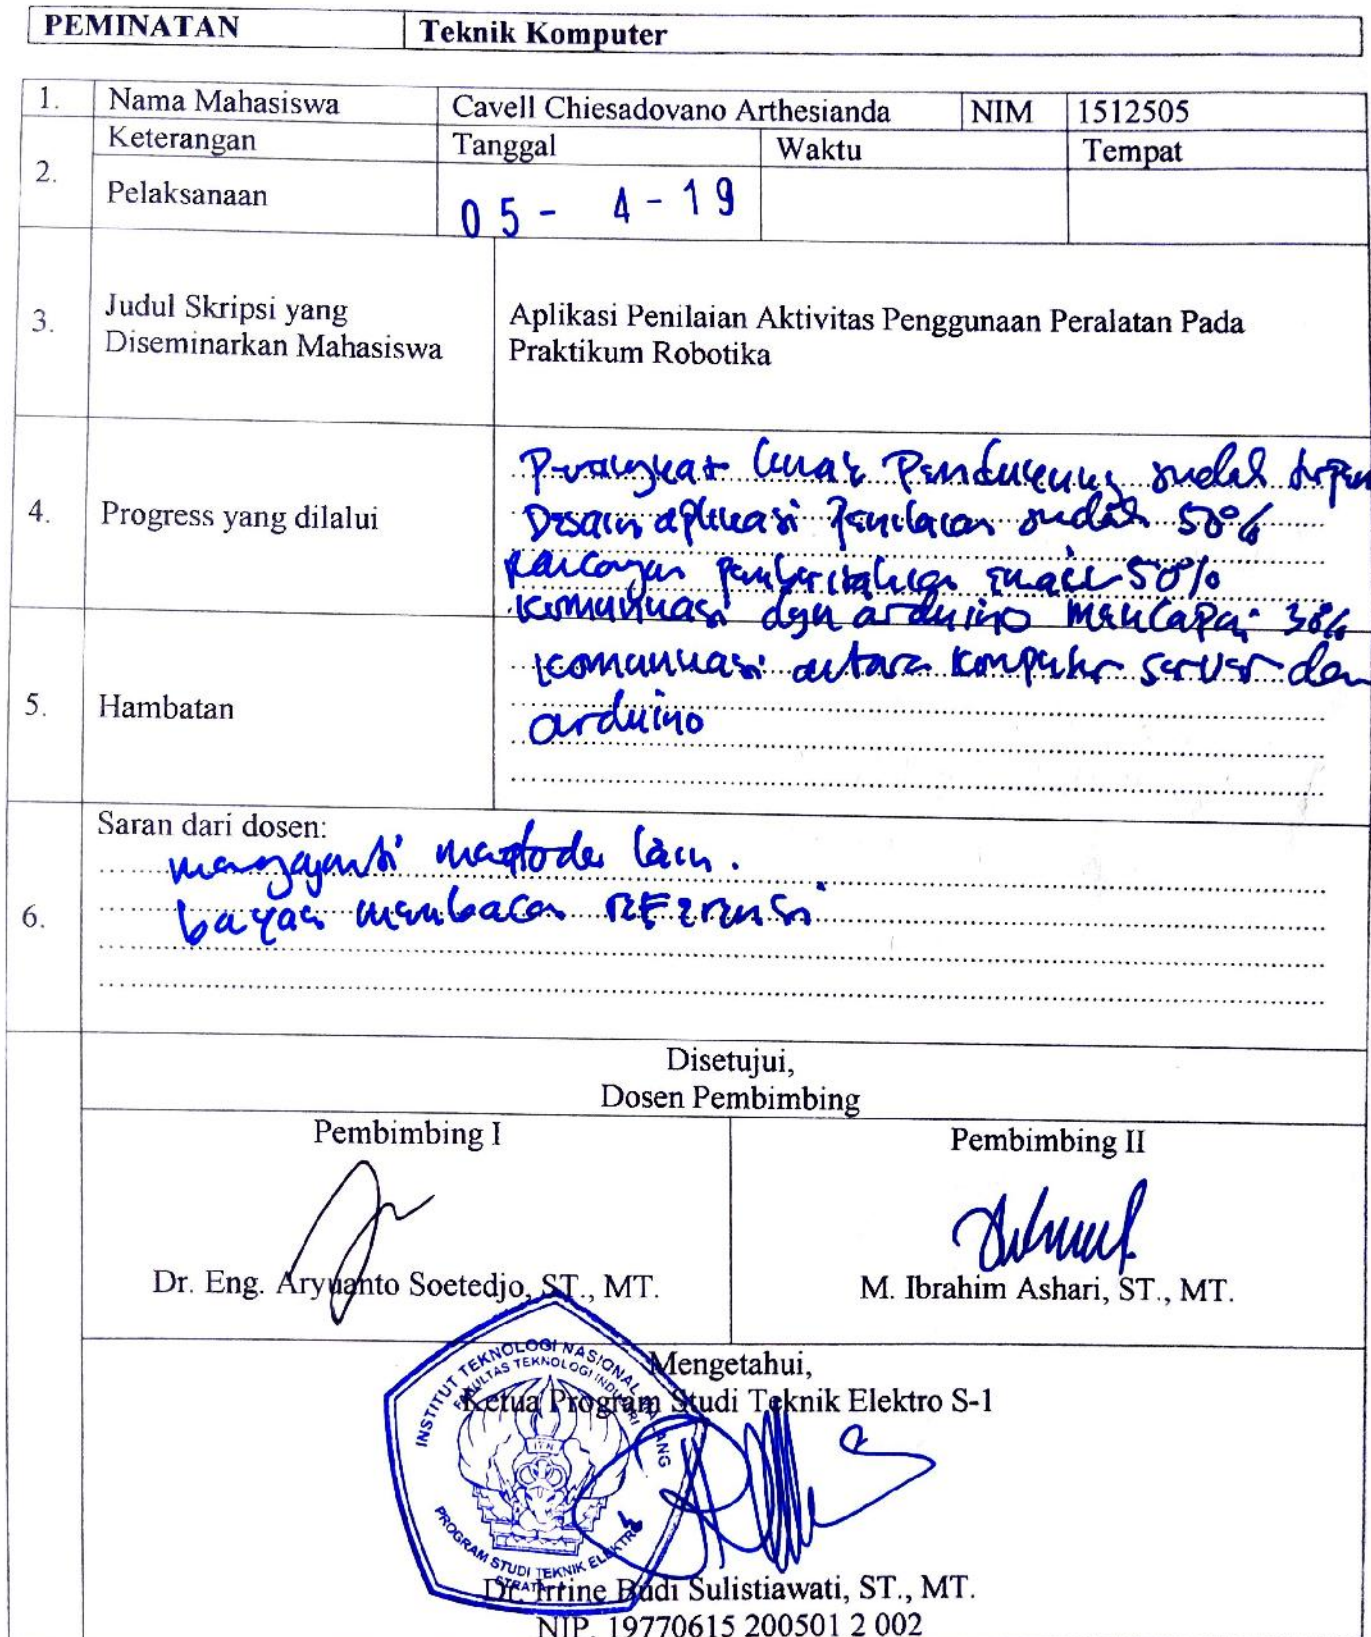 PEMINATAN Teknik Komputer
1. Nama Mahasiswa Cavell Chiesadovano Arthesianda NIM 1512505
2. Keterangan Tanggal Waktu Tempat
Pelaksanaan 05 - 4 - 19
3. Judul Skripsi yang Diseminarkan Mahasiswa
Aplikasi Penilaian Aktivitas Penggunaan Peralatan Pada
Praktikum Robotika
4. Progress yang dilalui
Perangkat lunak Pendukung sudah
Desain aplikasi Penilaian sudah 50%
Rancangan pemberitahuan email 50%
komunikasi dgn arduino mencapai 30%
5. Hambatan
komunikasi antara komputer server dan
arduino
6. Saran dari dosen:
mengganti metode lain.
membaca referensi
Disetujui,
Dosen Pembimbing
Pembimbing I Pembimbing II
Dr. Eng. Aryuanto Soetedjo, ST., MT. M. Ibrahim Ashari, ST., MT.
Mengetahui,
Ketua Program Studi Teknik Elektro S-1
INSTITUT TEKNOLOGI NASIONAL MALANG
FAKULTAS TEKNOLOGI INDUSTRI
ITN
PROGRAM STUDI TEKNIK ELEKTRO
STRATA
Dr. Irrine Budi Sulistiawati, ST., MT.
NIP. 19770615 200501 2 002